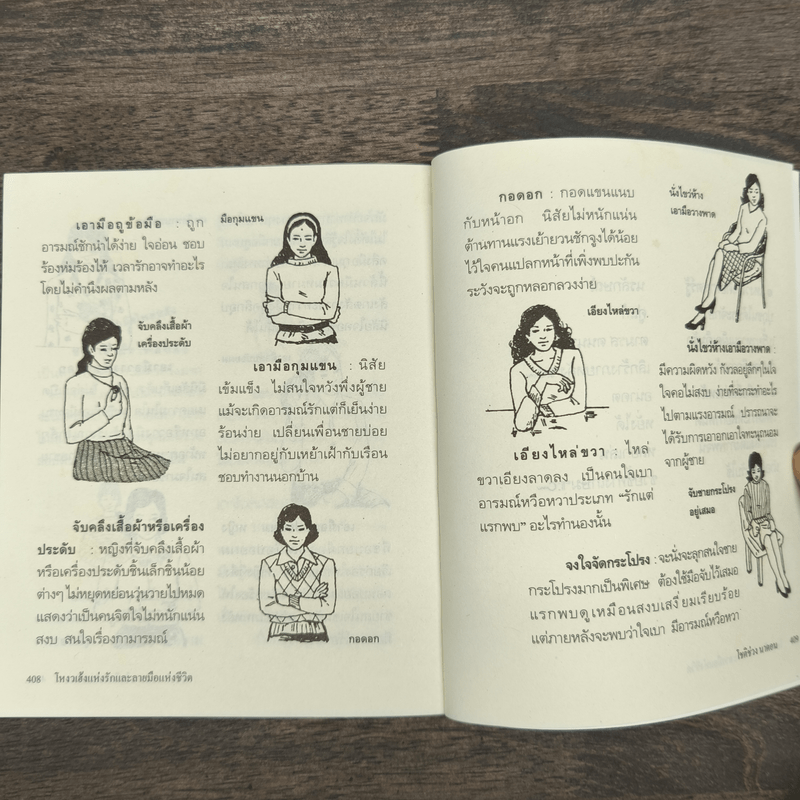 เอามือถูข้อมือ : ถูก
อารมณ์ชักนำได้ง่าย ใจอ่อน ชอบ
ร้องห่มร้องไห้ เวลารักอาจทำอะไร
โดยไม่คำนึงผลตามหลัง
จับคลึงเสื้อผ้า
เครื่องประดับ
จับคลึงเสื้อผ้าหรือเครื่อง
ประดับ : หญิงที่จับคลึงเสื้อผ้า
หรือเครื่องประดับชิ้นเล็กชิ้นน้อย
ต่างๆ ไม่หยุดหย่อนวุ่นวายไปหมด
แสดงว่าเป็นคนจิตใจไม่หนักแน่น
สงบ สนใจเรื่องกามารมณ์
มือกุมแขน
เอามือกุมแขน : นิสัย
เข้มแข็ง ไม่สนใจหวังพึ่งผู้ชาย
แม้จะเกิดอารมณ์รักแต่ก็เย็นง่าย
ร้อนง่าย เปลี่ยนเพื่อนชายบ่อย
ไม่อยากอยู่กับเหย้าเฝ้ากับเรือน
ชอบทำงานนอกบ้าน
กอดอก
408 โหงวเฮ้งแห่งรักและลายมือแห่งชีวิต
กอดอก : กอดแขนแนบ
กับหน้าอก นิสัยไม่หนักแน่น
ต้านทานแรงเย้ายวนชักจูงได้น้อย
ไว้ใจคนแปลกหน้าที่เพิ่งพบปะกัน
ระวังจะถูกหลอกลวงง่าย
เอียงไหล่ขวา
เอียงไหล่ขวา : ไหล่
ขวาเอียงลาดลง เป็นคนใจเบา
อารมณ์หวือหวาประเภท “รักแต่
แรกพบ” อะไรทำนองนั้น
นั่งไขว่ห้าง
เอามือวางพาด
นั่งไขว่ห้างเอามือวางพาด :
มีความผิดหวัง กังวลอยู่ลึกๆในใจ
ใจคอไม่สงบ ง่ายที่จะกระทำอะไร
ไปตามแรงอารมณ์ ปรารถนาจะ
ได้รับการเอาอกเอาใจทะนุถนอม
จากผู้ชาย
จับชายกระโปรง
อยู่เสมอ
จงใจจัดกระโปรง : จะนั่งจะลุกสนใจชาย
กระโปรงมากเป็นพิเศษ ต้องใช้มือจับไว้เสมอ
แรกพบดูเหมือนสงบเสงี่ยมเรียบร้อย
แต่ภายหลังจะพบว่าใจเบา มีอารมณ์หวือหวา
โชติช่วง นาดอน 409